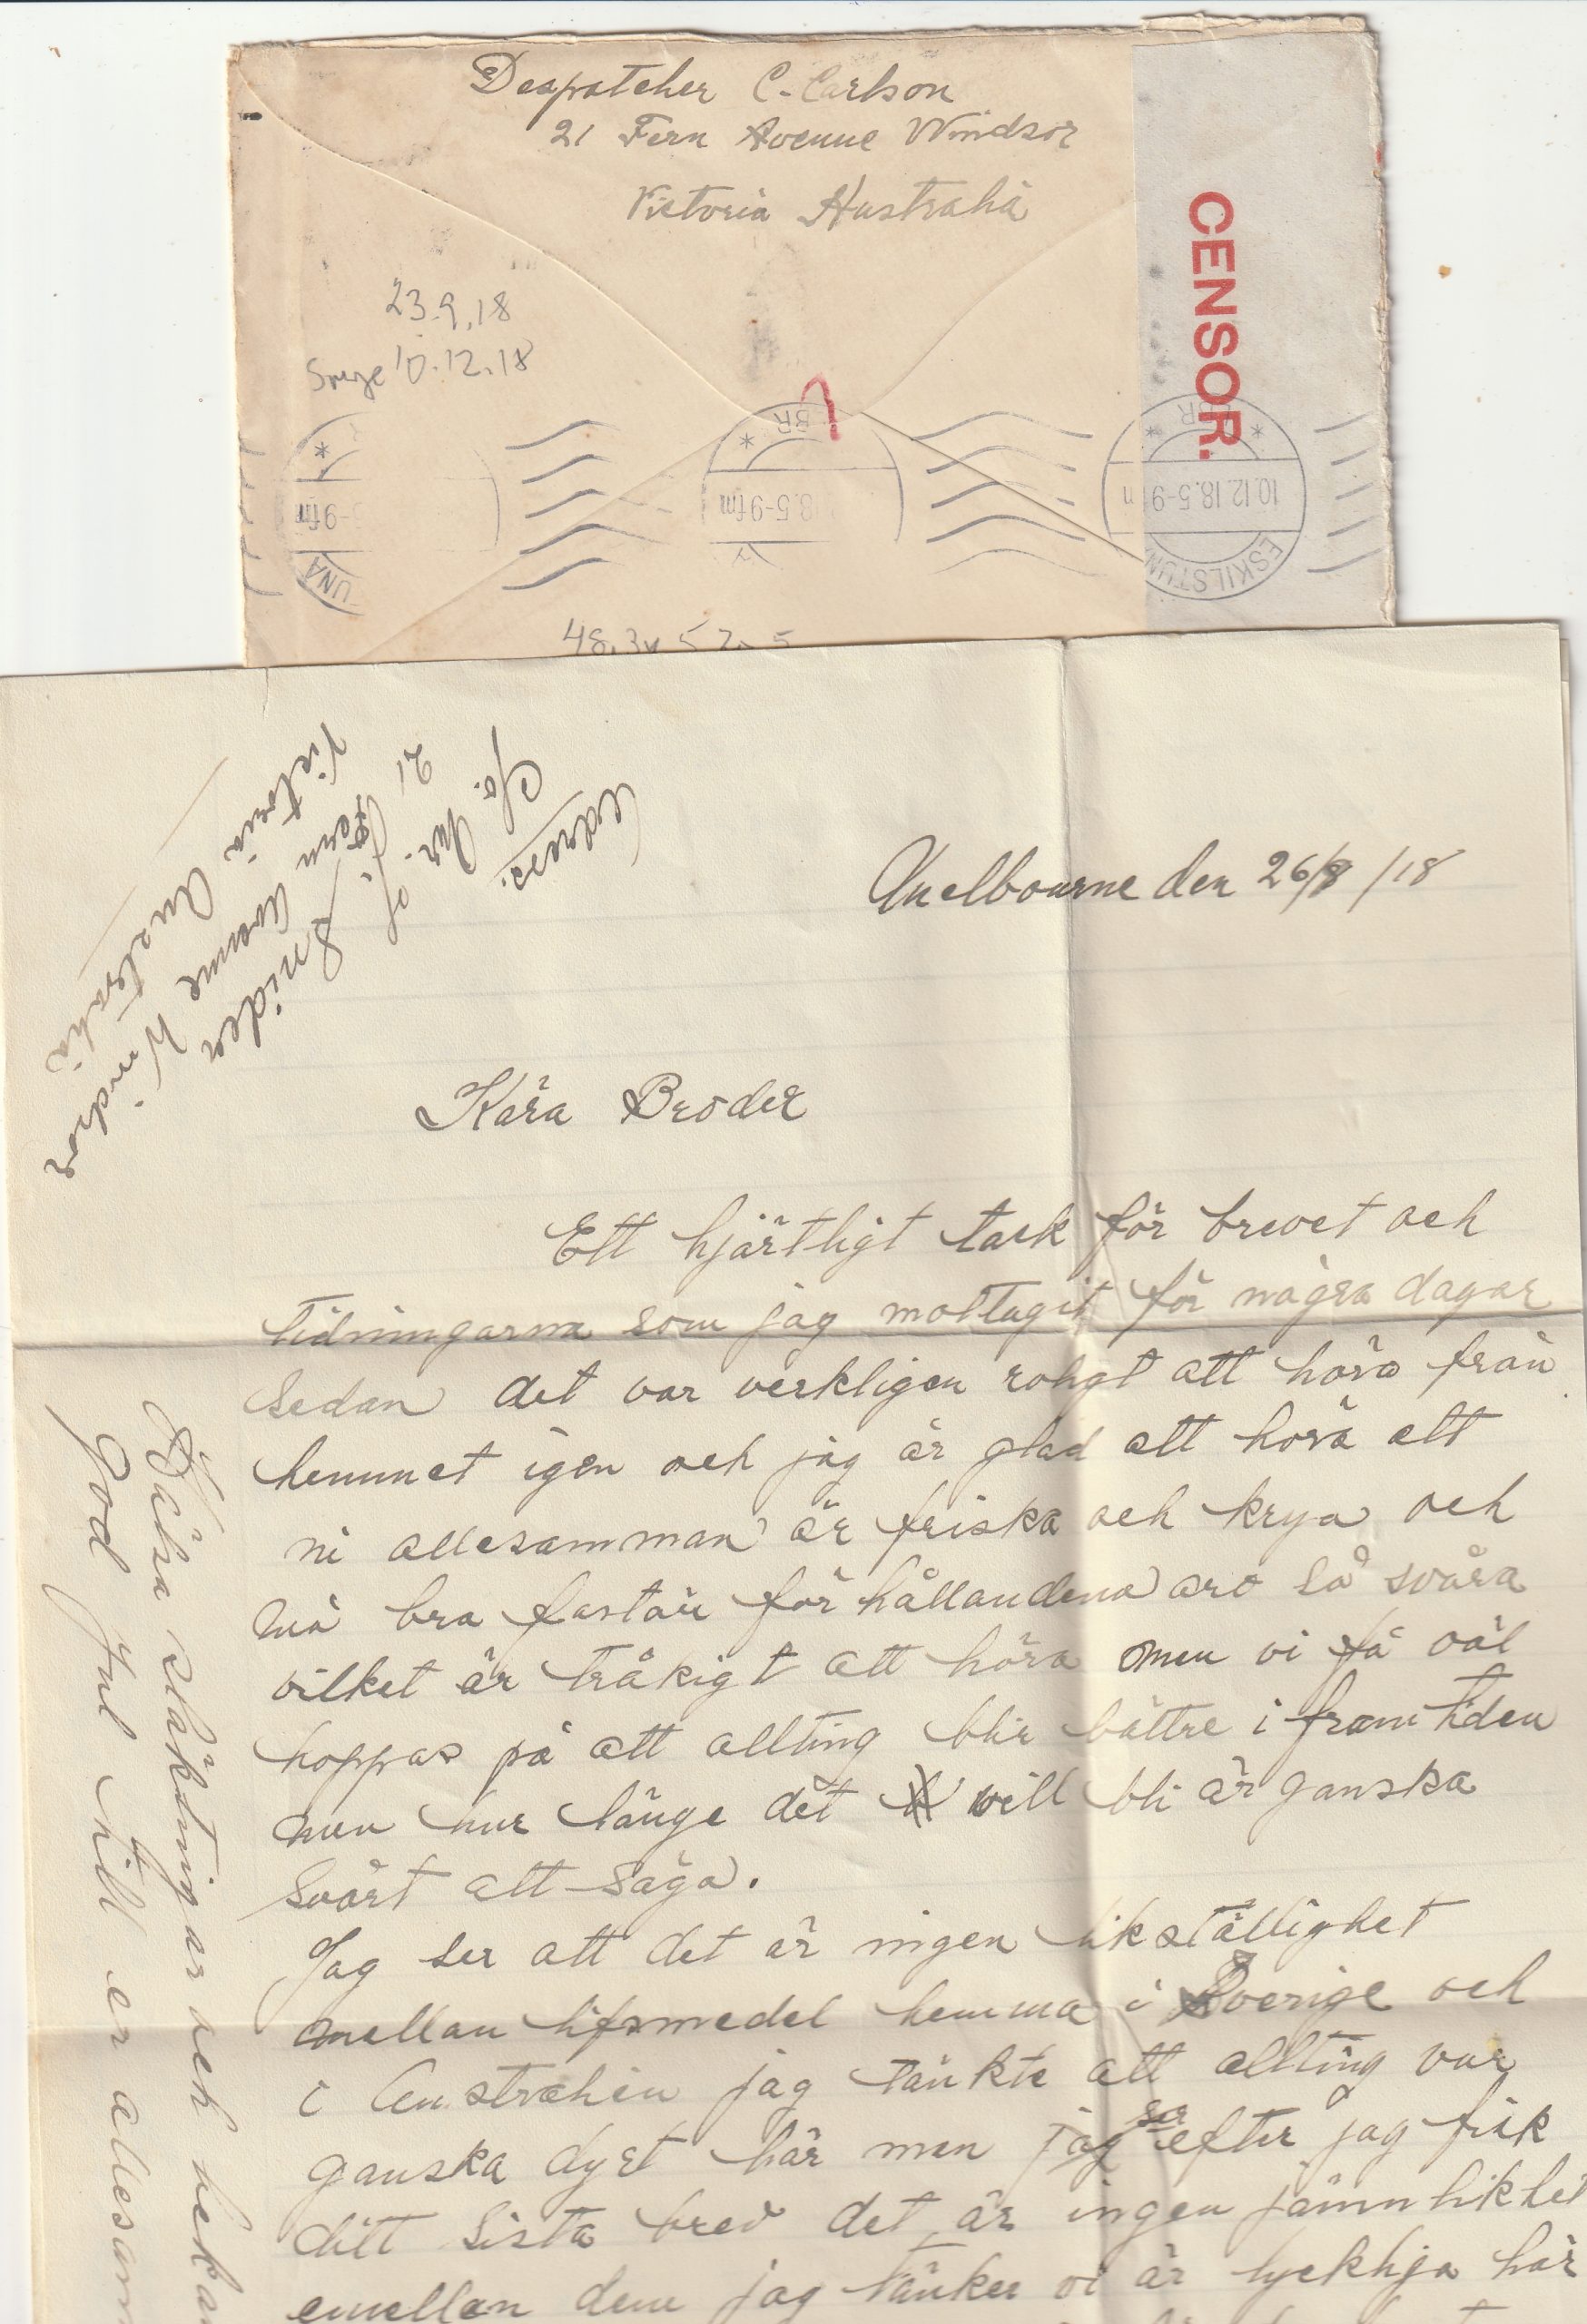 Despatcher C. Carlson
21 Fern Avenue Windsor
Victoria Australia
CENSOR.
23.9.18
10.12.18
BR
5-9 fm
UNA
BR
8.5-9 fm
BR
10.12.18.5-9
ESKILSTUN
Adress.
c/o. Mr. J. Snider
21 Fern Avenue Windsor
Victoria Australia
Melbourne den 26/8/18
Kära Broder
Ett hjärtligt tack för brevet och
tidningarna som jag mottagit för några dagar
sedan det var verkligen roligt att höra från
hemmet igen och jag är glad att höra att
ni allesamman är friska och krya och
må bra fastän förhållandena äro så svåra
vilket är tråkigt att höra men vi få väl
hoppas på att allting blir bättre i framtiden
men hur länge det will bli är ganska
svårt att säga.
Jag ser att det är ingen likställighet
mellan lifsmedel hemma i Sverige och
i Australien jag tänkte att allting var
ganska dyrt här men jag ser efter jag fick
ditt sista brev det är ingen jämnlikhet
emellan dem jag tänker vi är lyckliga här
Hälsa släktingar och bekan
God Jul till er allesam